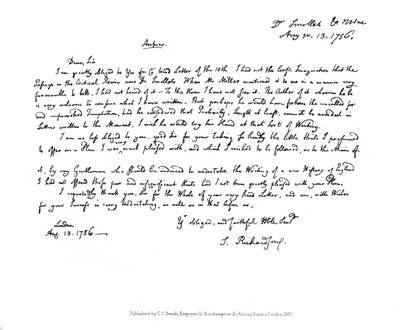 Dr Smollet &
Aug. 13. 1756.
Answer.
Dear Sir
I am greatly obliged to You for Yr kind Letter of the 10th. I had not the least Imagination that the
Passage in the Critical Review was Dr. Smollet's. When Mr Millar mentioned it to me in a manner very
favourable to both, I had not heard of it - To this Hour I have not seen it. The Author of it whoever he be
is very welcome to censure what I have written. But perhaps he would have forborn the uncalled for
and unprovoked, had he considered that Prolixity, Length at least, cannot be avoided in
Letters written to the Moment. I wish he would try his Hand at that Sort of Writing.
I am no less obliged to you, good Sir for your Taking so kindly the little Hints I presumed
to offer on a Plan I was very much pleased with, and which I wished to be followed, as to the Main of
it, by any Gentleman who should be induced to undertake the Writing of a new History of England
I had not offered those poor and insignificant Hints had I not been greatly pleased with your Plan.
I repeatedly thank you, Sir for the Whole of your very kind Letter, and am, with Wishes
for your Success in every Undertaking, as well as in that before us,
Yr obliged, and faithful Hble Servt
London
Aug. 13. 1756
S. Richardson.
Published by C. J. Smith, Engraver, Southampton St. Fitzroy Square London,